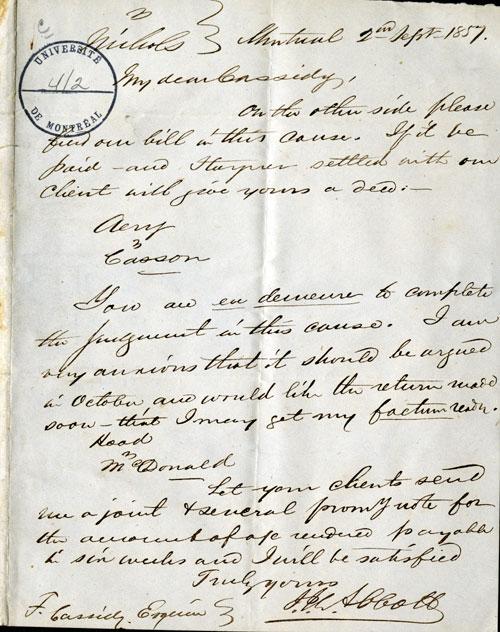 Nichols } Montreal 2nd Sept 1857.
UNIVERSITÉ
4/2
DE MONTRÉAL
My dear Cassidy,
On the other side please
find our bill in this cause. If it be
paid - and settled with our
client will give yours a deed:-
Casson
You are en demeure to complete
the Judgment in this cause. I am
very anxious that it should be argued
in October and would like the return made
soon - that I may get my factum ready.
McDonald
Let your clients send
me a joint & several promy note for
the account of age rendered payable
in six weeks and I will be satisfied
Truly yours
J.J.C. Abbott
F. Cassidy. Esquire }